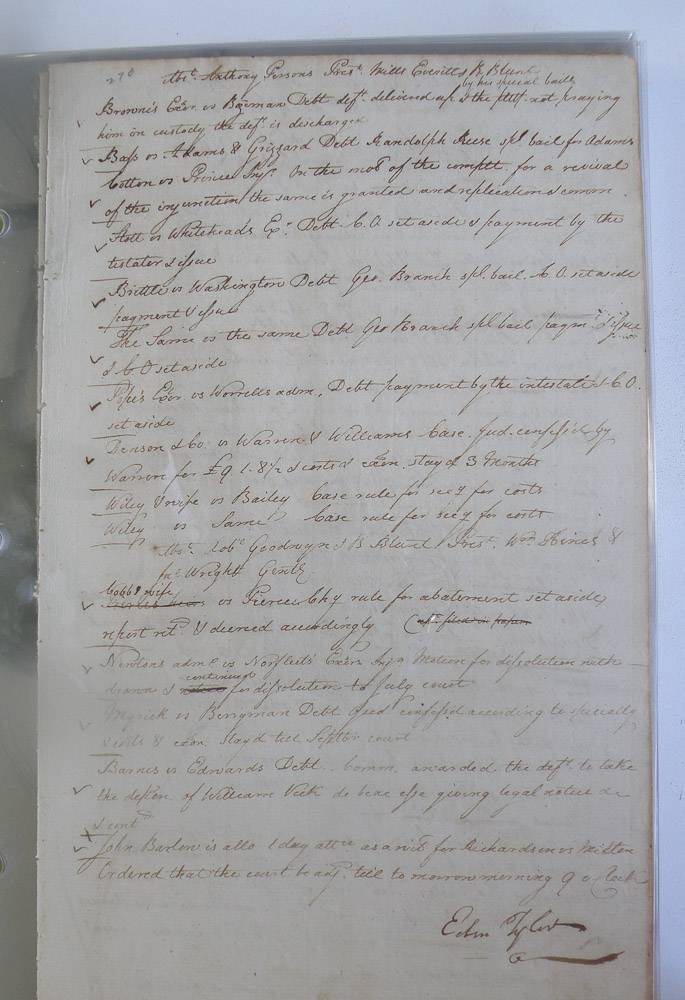 270
Abst. Anthony Persons Prest. Mills Everitt & B. Blunt
by his special baile
Brown's Exor. vs Bozeman Debt deft. delivered up & the pltff. not praying
him in custody the deft. is discharged
Bass vs Adams & Grizzard Debt Randolph Reese spl bail for Adams
Cotton vs Prince Injn. On the mon of the complt. for a revival
of the injunction the same is granted and replication & comm.
Stott vs Whitehead's Exr. Debt C. O. set aside & payment by the
testator & issue
Brittle vs Washington Debt Geo. Branch spl. bail. C. O. set aside
payment & issue
The Same vs the same Debt Geo Branch spl bail paymt. & issue
& C O set aside
Pope's Exor vs Worrells adm. Debt payment by the intestate & C O.
set aside
Denson & Co. vs Warren & Williams Case. Jud. confess'd by
Warren for £9.1.8½ & costs & exon. stay of 3 Months
Wiley & wife vs Bailey Case rule for secy for costs
Wiley vs Same Case rule for secy for costs
Abst. Robt. Goodwyn & B Blunt Prest. Wm. Hines &
Jas. Wright Gentl.
Cobb & wife
vs Pierce Chy rule for abatement set aside,
report retd. & decreed accordingly
Newtons admr vs Norfleet's Exors Injn Motion for dissolution with
continued
drawn & for dissolution to July court
Myrick vs Berryman Debt Jud confess'd according to specialty
& costs & exon. stay'd till Septbr court
Barnes vs Edwards Debt. Comm. awarded the deft. to take
the depon. of William Vick de bene esse giving legal notice &c
& contd.
John Barlow is allo 1 day attce as a wits for Richardson vs Milton
Ordered that the court be adjd. till to morrow morning 9 o Clock
Edwn Tyler